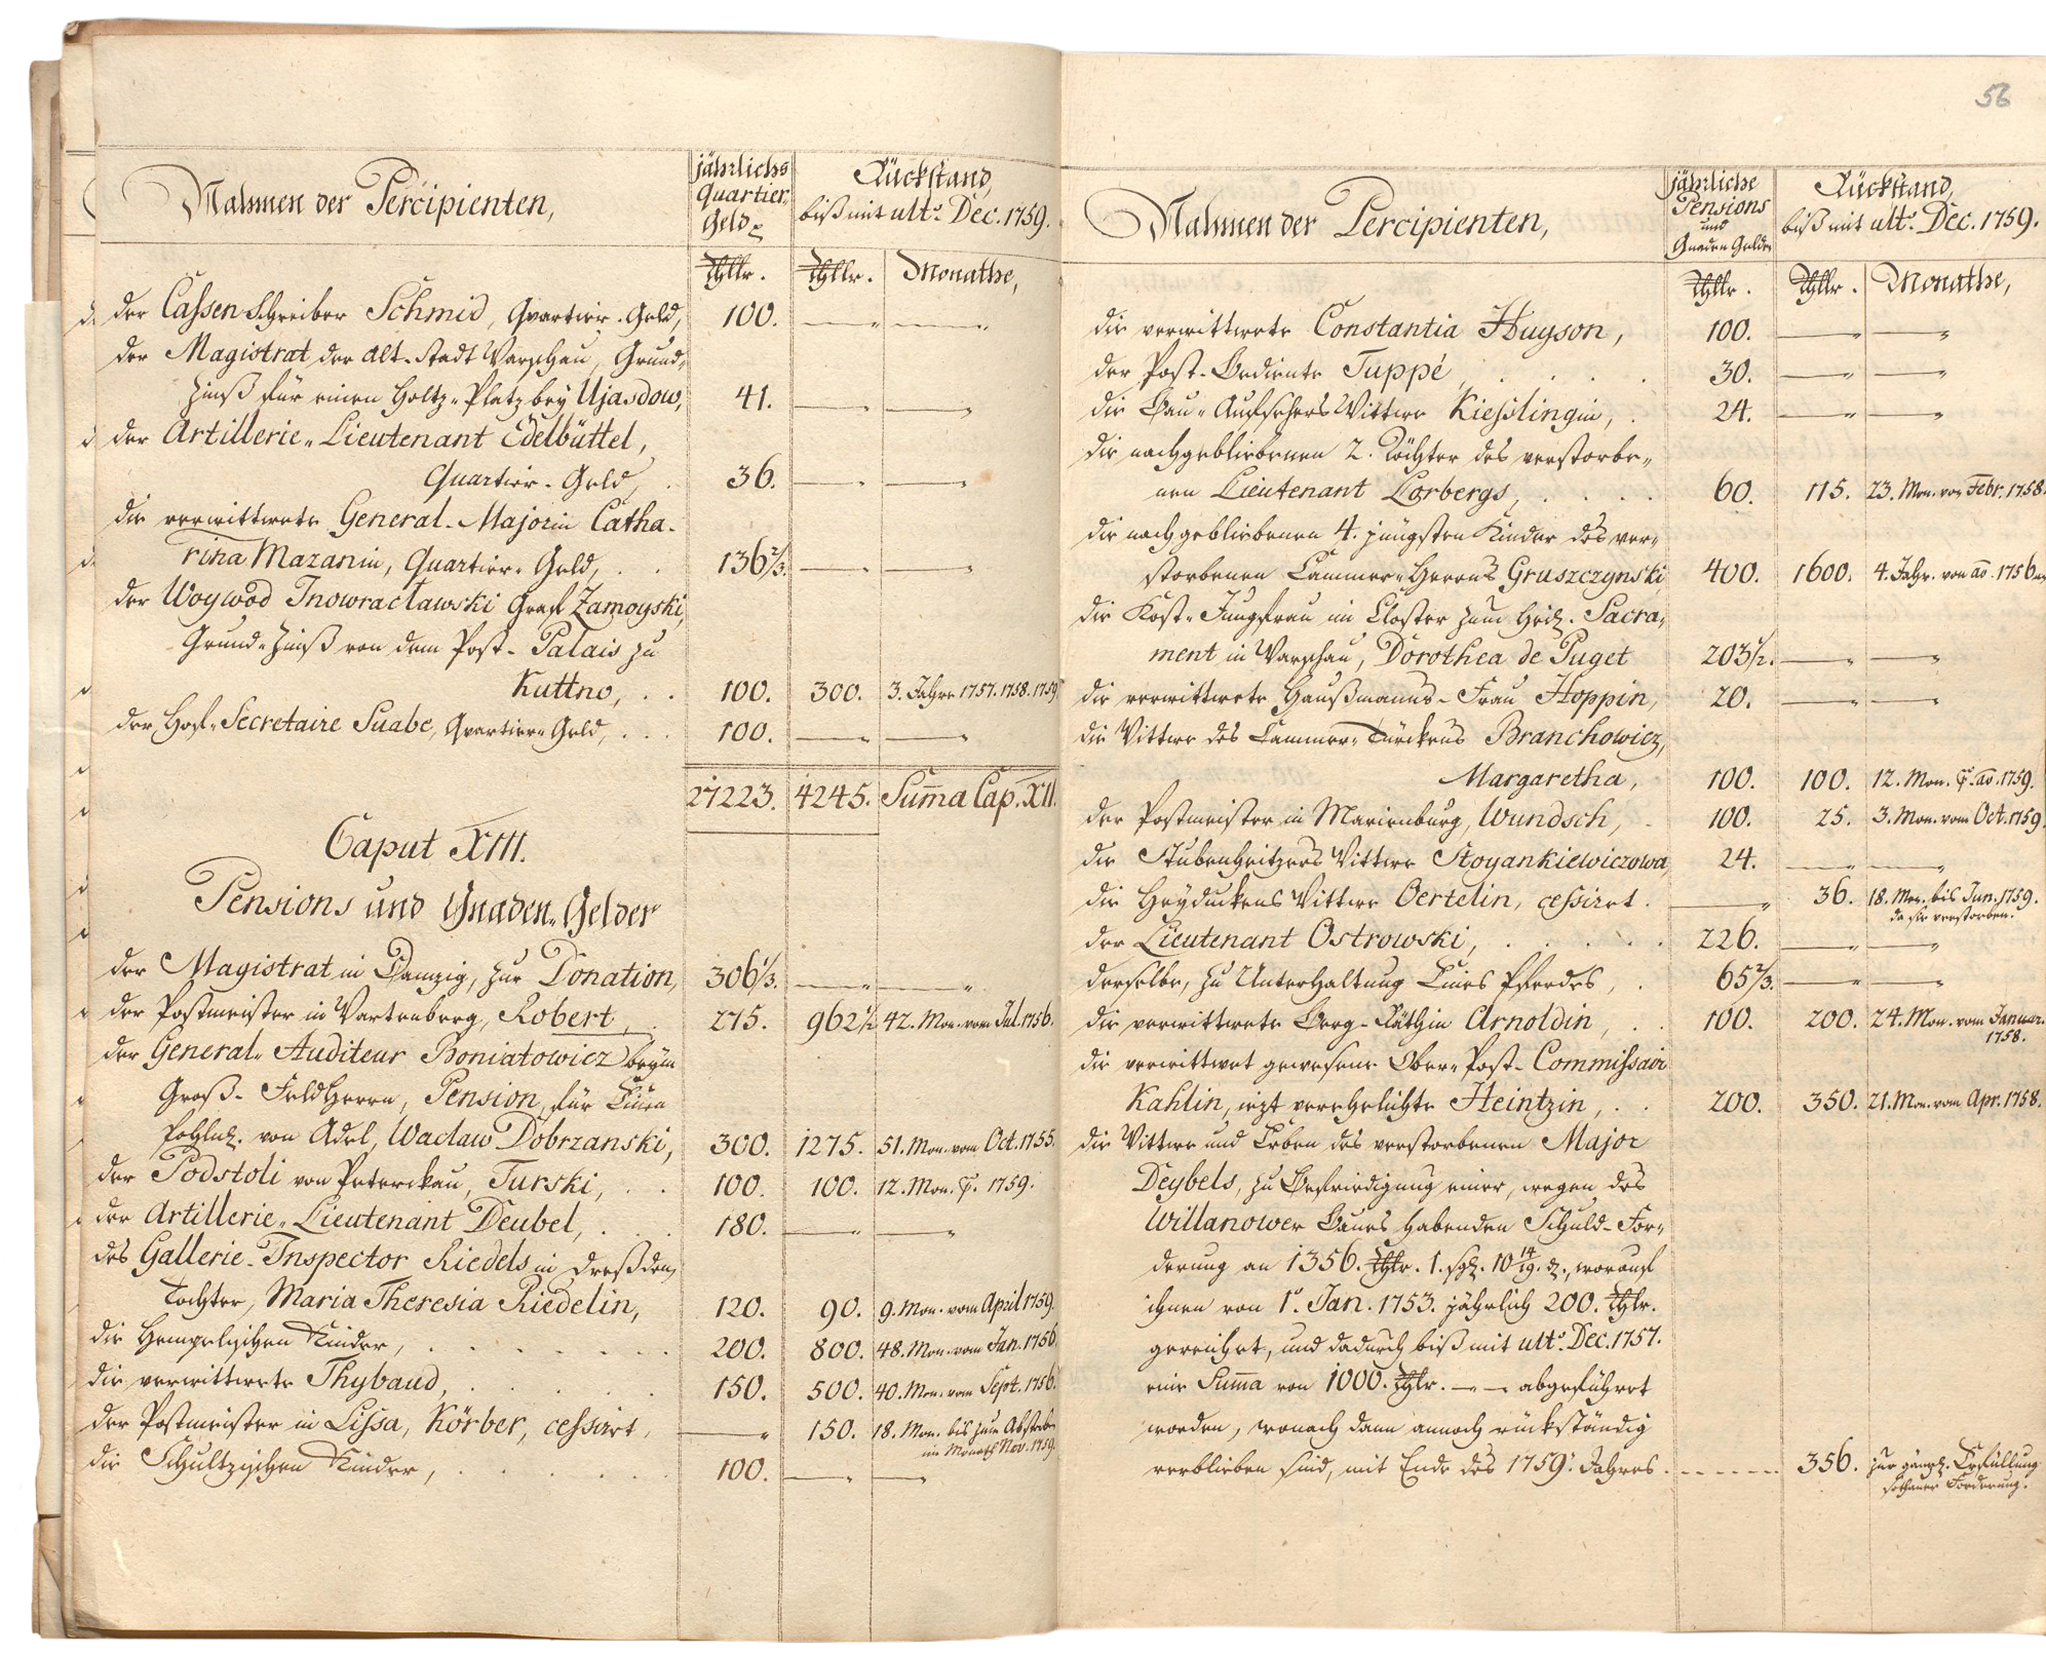 Nahmen der Percipienten,
jährliche Quartier Geld.
Rückstand, biß mit ult. Dec. 1759.
Thlr. Thlr. Monathe,
der Cassen Schreiber Schmid, Quartier-Geld, 100. — —
der Magistrat der Alt-Stadt Warschau, Grund-
Zinß für einen Holtz-Platz bey Ujasdow, 41. — —
der Artillerie-Lieutenant Edelbüttel,
Quartier-Geld, . 36. — —
die verwittwete General-Majorin Catha-
rina Mazanin, Quartier-Geld, . . 136 2/3. — —
der Woywod Inowracławski Graf Zamoyski,
Grund-Zinß von dem Post-Palais zu
Kuttno, . . 100. 300. 3. Jahre 1757. 1758. 1759
der Hof-Secretaire Suabe, Quartier-Geld, . . . 100. — —
27223. 4245. Summa Cap. XII.
Caput XIII.
Pensions und Gnaden-Gelder
der Magistrat in Danzig, zur Donation, 306 1/3. — —
der Postmeister in Wartenberg, Robert, . 275. 962 1/2 42. Mon. vom Jul. 1756.
der General-Auditeur Boniatowicz beym
Groß-Feldherrn, Pension, für Einen
Pohln. von Adel, Wacław Dobrzanski, 300. 1275. 51. Mon. vom Oct. 1755.
der Podstoli von Peterckau, Turski, . . 100. 100. 12. Mon. p. 1759.
der Artillerie-Lieutenant Deubel, . . . 180. — —
des Gallerie-Inspector Riedels in Dreßden,
Tochter, Maria Theresia Riedelin, 120. 90. 9. Mon. vom April 1759.
die Hempelischen Kinder, . . . . . . . 200. 800. 48. Mon. vom Jan. 1756.
die verwittwete Thybaud, . . . . . . 150. 500. 40. Mon. vom Sept. 1756.
der Postmeister in Lissa, Körber, cessirt, — 150. 18. Mon. bis zum Absterben
im Monath Nov. 1759.
die Schultzischen Kinder, . . . . . . 100. — —
56
Nahmen der Percipienten,
jährliche Pensions und Gnaden Gelder
Rückstand, biß mit ult. Dec. 1759.
Thlr. Thlr. Monathe,
die verwittwete Constantia Huyson, 100. — —
der Post-Bediente Tuppé, . . . . 30. — —
die Bau-Aufsehers Wittwe Kiesslingin, . 24. — —
die nachgebliebenen 2. Töchter des verstorbe-
nen Lieutenant Lorbergs, . . . . 60. 115. 23. Mon. von Febr. 1758.
die nachgebliebenen 4. jüngsten Kinder des ver-
storbenen Cammer-Herrns Gruszczynski 400. 1600. 4. Jahr. von ao. 1756 an
die Kost-Jungfrau im Closter zum Heil. Sacra-
ment in Warschau, Dorothea de Puget 203 1/2. — —
die verwittwete Haußmanns-Frau Hoppin, 20. — —
die Wittwe des Cammer-Türckens Branchowicz,
Margaretha, 100. 100. 12. Mon. p. ao. 1759.
der Postmeister in Marienburg, Wundsch, . 100. 25. 3. Mon. vom Oct. 1759.
die Stubenheitzers Wittwe Stoyankiewiczowa, 24. — —
die Heyduckens Wittwe Oertelin, cessiret. — 36. 18. Mon. bis Jun. 1759.
da sie verstorben.
der Lieutenant Ostrowski, . . . . . 226. — —
derselbe, zu Unterhaltung Eines Pferdes, . 65 2/3. — —
die verwittwete Berg-Räthin Arnoldin, . . 100. 200. 24. Mon. vom Januar.
1758.
die verwittwet gewesene Ober-Post-Commissair
Kahlin, iezt verehelichte Heintzin, . . 200. 350. 21. Mon. vom Apr. 1758.
die Wittwe und Erben des verstorbenen Major
Deybels, zu Befriedigung einer, wegen des
Willanower Baues habenden Schuld-For-
derung an 1356. Thlr. 1. sgl. 10 14/19. d., worauf
ihnen von 1. Jan. 1753. jährlich 200. Thlr.
gereichet, und dadurch biß mit ult. Dec. 1757.
eine Summa von 1000. Thlr. — — abgeführet
worden, wonach dann annoch rückständig
verblieben sind, mit Ende des 1759. Jahres . . . . . . 356. zur gäntzl. Erfüllung
sothaner Forderung.